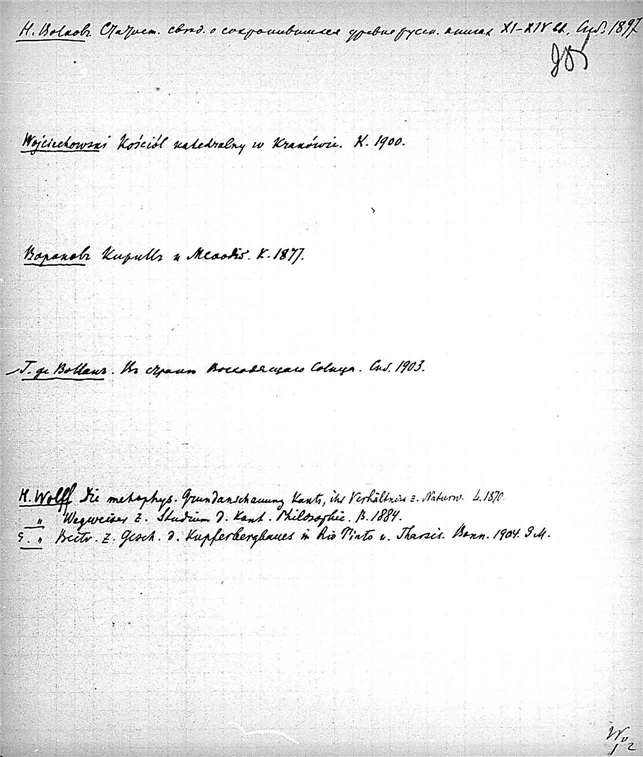 Н. Волковъ Статист. свѣд. о сохранившихся древнерусск. книгах XI–XIV вв. Спб. 1897
Wojciechowski Kościół katedralny w Krakówie. K. 1900.
Вороновъ Кириллъ и Меѳодій. К. 1877.
Г. де Волланъ. Въ странѣ Восходящаго Солнца. Спб. 1903.
H. Wolff Die metaphys. Grundanschauung Kants, ihr Verhältnis z. Naturw. L. 1870.
" Wegweiser z. Studium d. Kant. Philosophie. B. 1884.
G. " Beitr. z. Gesch. d. Kupferbergbaues in Rio Tinto u. Tharsis. Bonn. 1904. 3 M.